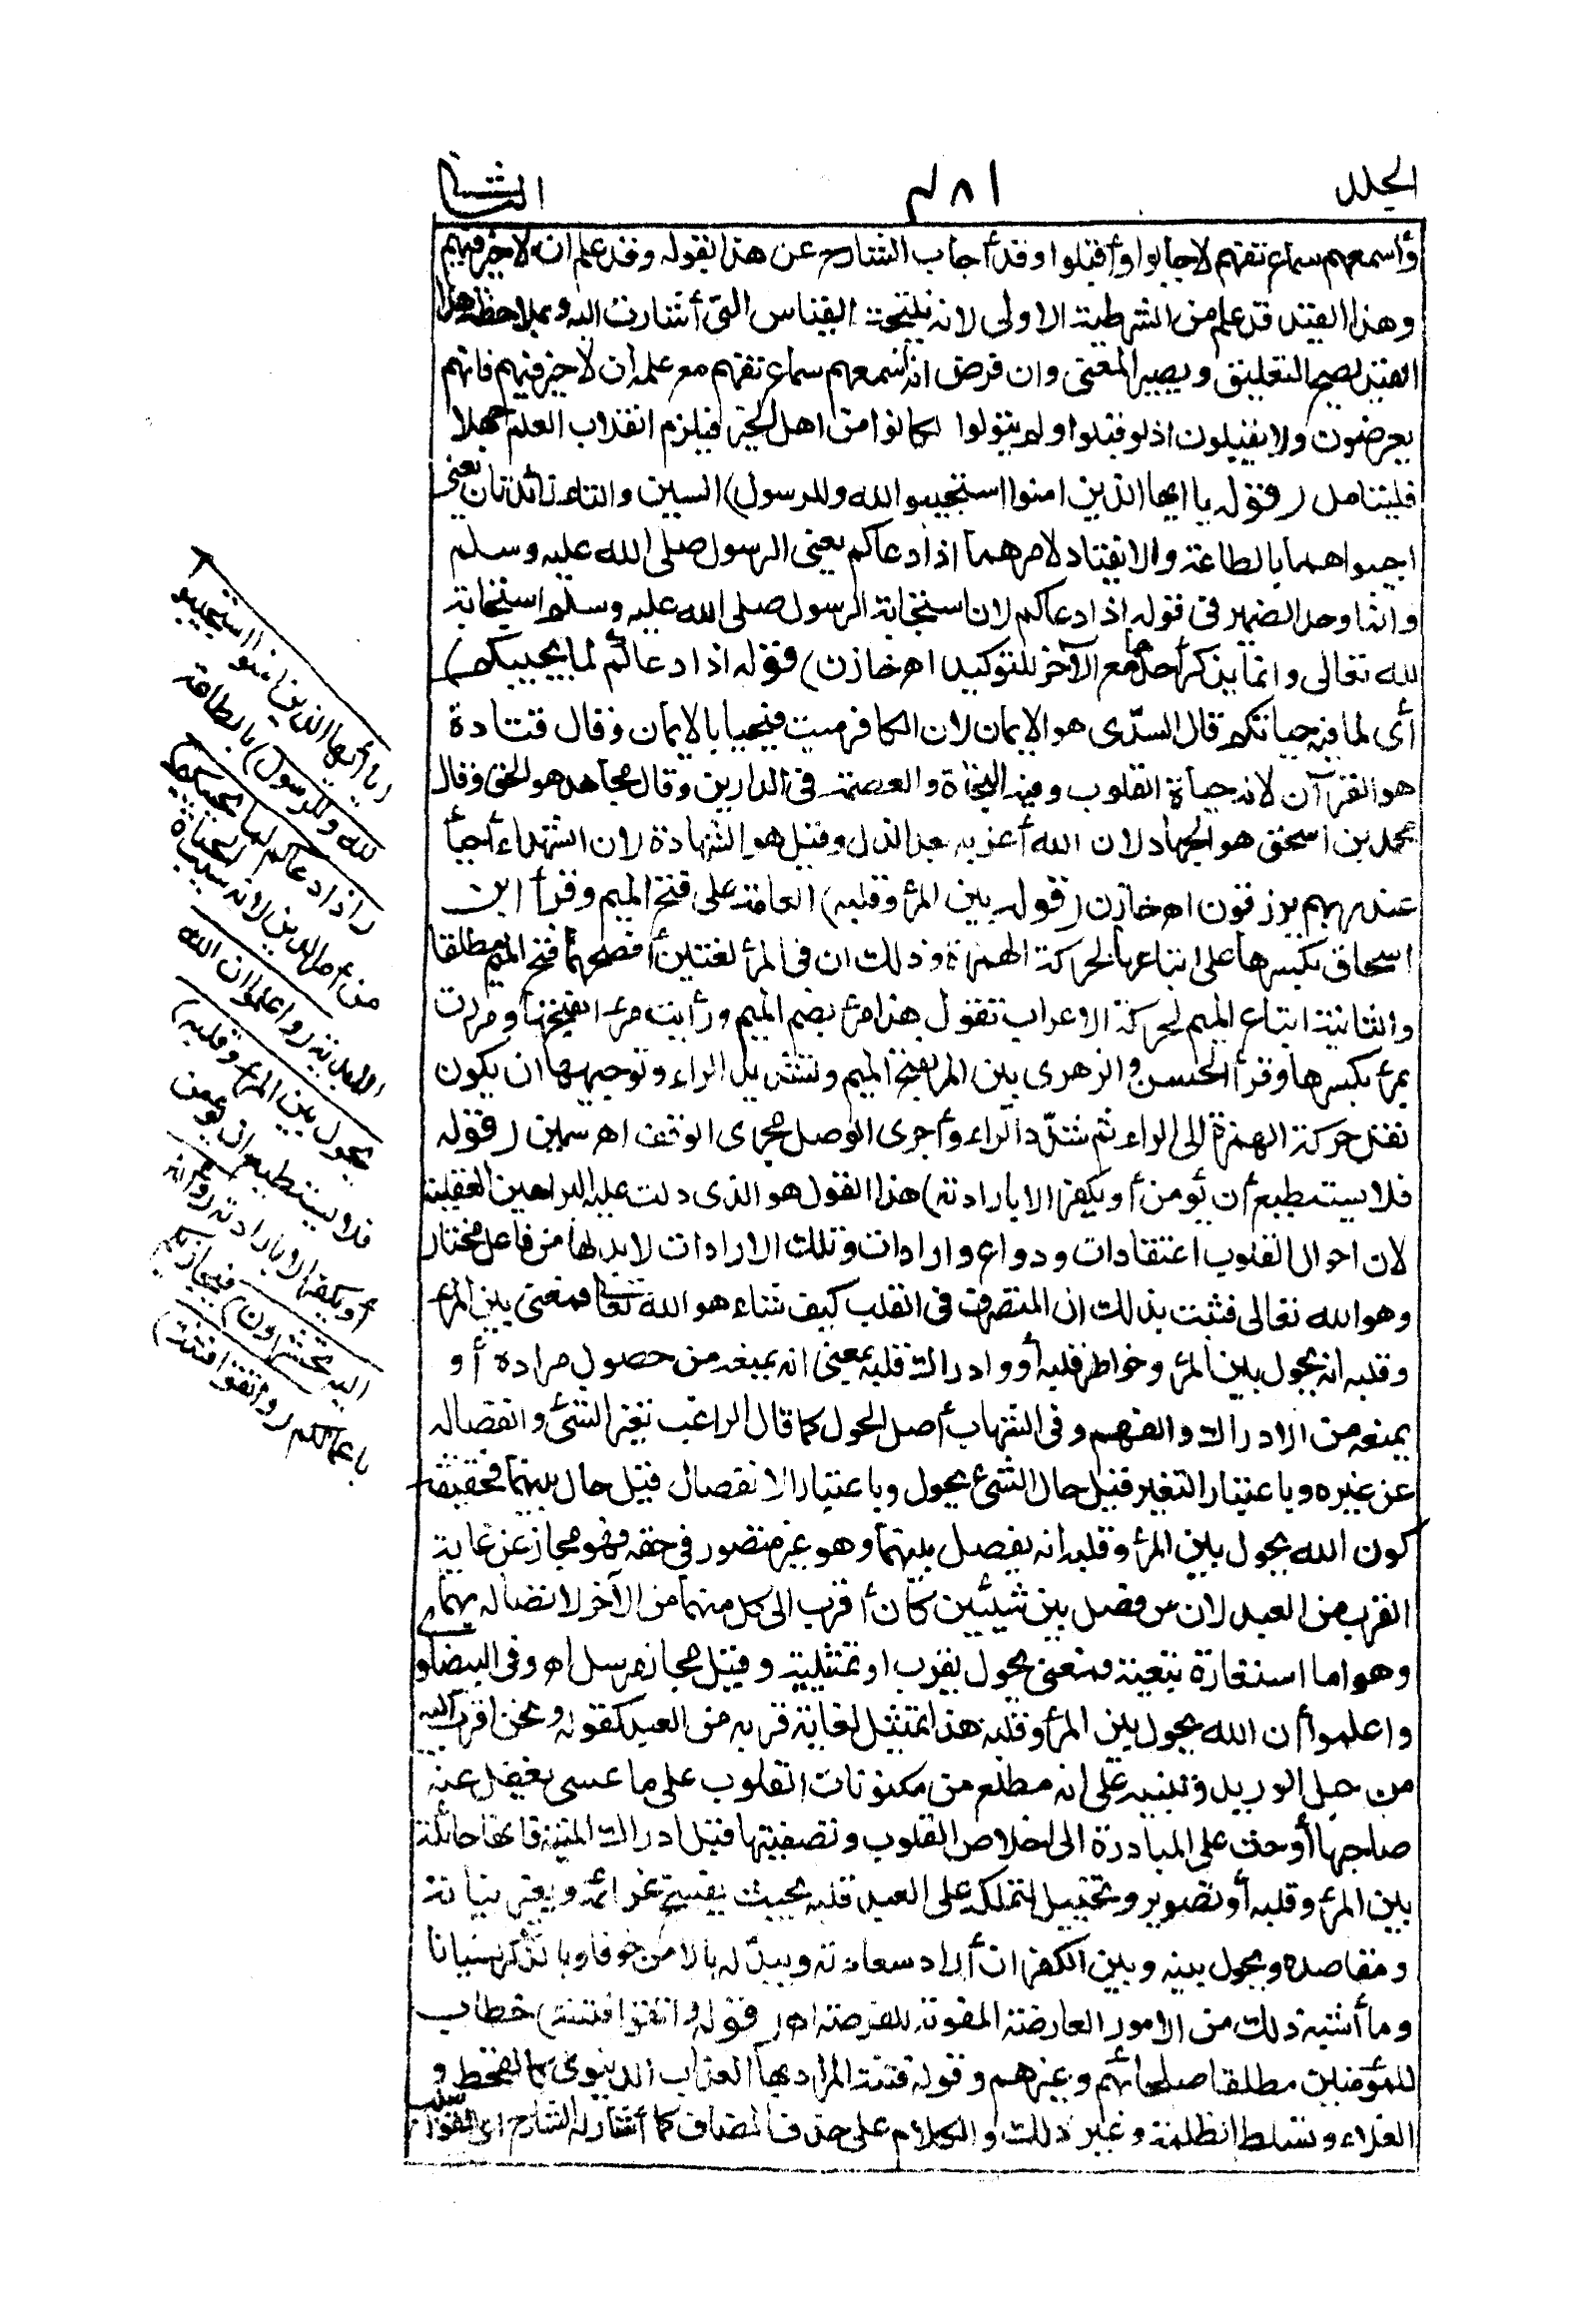 الجلد
٢٨١
الثانى
وأسمعهم سماع تفهم لاجابوا وأقبلوا وقد أجاب الشارح عن هذا بقوله وقد علم ان لا خير فيهم
وهذا القيد قد علم من الشرطية الاولى لانه نتيجة القياس التى أشارت اليه وبملاحظة هذا
القيد يصح التعليق ويصير المعنى وان فرض انه أسمعهم سماع تفهم مع علمه ان لا خير فيهم فانهم
يعرضون ولا يقبلون اذ لو قبلوا ولم يتولوا لكانوا من اهل الخير فيلزم انقلاب العلم جهلا
فليتامل (قوله يا ايها الذين امنوا استجيبوا لله وللرسول) السين والتاء زائدتان يعنى
اجيبواهما بالطاعة والانقياد لامرهما اذا دعاكم يعنى الرسول صلى الله عليه وسلم
وانما وحد الضمير فى قوله اذا دعاكم لان استجابة الرسول صلى الله عليه وسلم استجابة
لله تعالى وانما يذكر أحدهما مع الآخر للتوكيد اه خازن (قوله اذا دعاكم لما يحييكم)
أى لما فيه حياتكم قال السدّى هو الايمان لان الكافر ميت فيحيا بالايمان وقال قتادة
هو القرآن لانه حياة القلوب وفيه النجاة والعصمة فى الدارين وقال مجاهد هو الحق وقال
محمد بن اسحق هو الجهاد لان الله أعز به بعد الذل وقيل هو الشهادة لان الشهداء أحيأ
عند ربهم يرزقون اه خازن (قوله بين المرء وقلبه) العامة على فتح الميم وقرأ ابن
اسحاق بكسرها على اتباعها لحركة الهمزة وذلك ان فى المرء لغتين أفصحهما فتح الميم مطلقا
والثانية اتباع الميم لحركة الاعراب تقول هذا مرء بضم الميم ورأيت مرءا بفتحها ومررت
بمرء بكسرها وقرأ الحسن والزهرى بين المر بفتح الميم وتشديد الراء وتوجيهها ان يكون
نقل حركة الهمزة الى الراء ثم شدّد الراء وأجرى الوصل مجرى الوقف اه سمين (قوله
فلا يستطيع أن يؤمن أو يكفر الا بارادته) هذا القول هو الذى دلت عليه البراهين العقلية
لان احوال القلوب اعتقادات ودواع وارادات وتلك الارادات لابد لها من فاعل مختار
وهو الله تعالى فثبت بذلك ان المتصرف فى القلب كيف شاء هو الله تعالى فمعنى بين المرء
وقلبه انه يحول بين المرء وخواطر قلبه أو وادراك قلبه بمعنى انه يمنعه من حصول مراده أو
يمنعه من الادراك والفهم وفى الشهاب أصل الحول كما قال الراغب تغير الشئ وانفصاله
عن غيره وباعتبار التغير قيل حال الشئ يحول وباعتبار الانفصال قيل حال بينهما فحقيقة
كون الله يحول بين المرء وقلبه انه يفصل بينهما وهو غير متصور فى حقه فهو مجاز عن غاية
القرب من العبد لان من فصل بين شيئين كان أقرب الى كل منهما من الآخر لاتصاله بهما
وهو اما استعارة تبعية فمعنى يحول يقرب او تمثيلية وقيل مجاز مرسل اه وفى البيضاو
واعلموا أن الله يحول بين المرء وقلبه هذا تمثيل لغاية قربه من العبد كقوله ونحن اقرب اليه
من حبل الوريد وتنبيه على انه مطلع من مكنونات القلوب على ما عسى يغفل عنه
صاحبها أو حث على المبادرة الى اخلاص القلوب وتصفيتها قبل ادراك المنية فانها حائلة
بين المرء وقلبه أو تصوير وتخييل لتملكه على العبد قلبه بحيث يفسخ عزائمه ويغير نياته
ومقاصده ويحول بينه وبين الكفر ان أراد سعادته ويبدّله بالامن خوفا وبالذكر نسيانا
وما أشبه ذلك من الامور العارضة المفوتة للفرصة اه (قوله واتقوا فتنة) خطاب
للمؤمنين مطلقا صلحائهم وغيرهم وقوله فتنة المراد بها العذاب الدنيوى كالقحط و
الغلاء وتسلط الظلمة وغير ذلك والكلام على حذف المضاف كما أشار له الشارح اى اتقوا سبب
(يا أيها الذين امنوا استجيبو
لله وللرسول) بالطاعة
(اذا دعاكم لما يحييكم)
من أمر الدين لانه سبب الحياة
الابدية (واعلموا ان الله
يحول بين المرء وقلبه)
فلا يستطيع ان يؤمن
أو يكفر الا بارادته (وأنه
اليه تحشرون) فيجازيكم
باعمالكم (واتقوا فتنة)